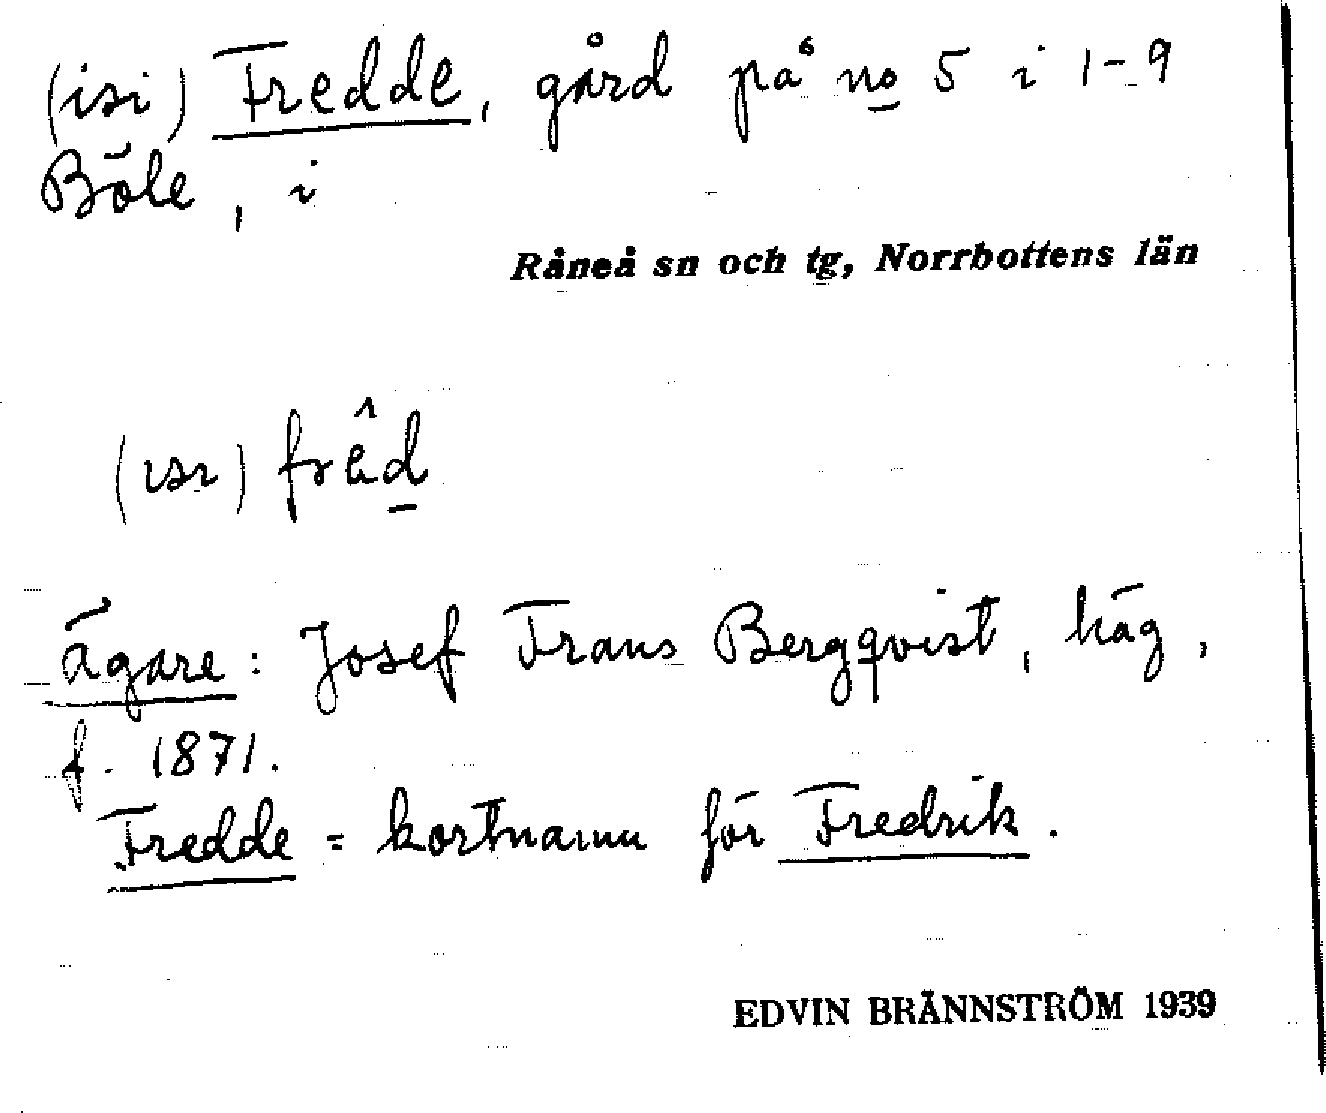 (isi) Fredde, gård på no 5 i 1-9
Böle, i
Råneå sn och tg, Norrbottens län
(isi) frêd
ägare: Josef Frans Bergqvist, häg,
f. 1871.
Fredde = kortnamn för Fredrik.
EDVIN BRÄNNSTRÖM 1939